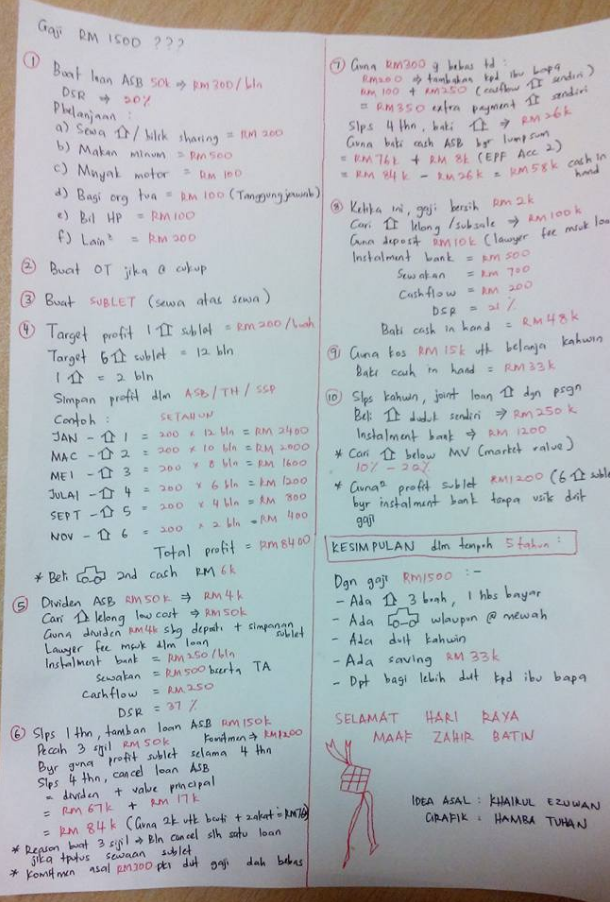 Gaji RM 1500 ???
① Buat loan ASB 50k ⇒ RM 300/bln
DSR ⇒ 20%
Pbelanjaan :
a) Sewa / bilik sharing = RM 200
b) Makan minum = RM 500
c) Minyak motor = RM 100
d) Bagi org tua = RM 100 (Tanggungjawab)
e) Bil HP = RM 100
f) Lain² = RM 200
② Buat OT jika @ cukup
③ Buat SUBLET (sewa atas sewa)
④ Target profit 1 sublet = RM 200 / buah
Target 6 sublet = 12 bln
1 = 2 bln
Simpan profit dlm ASB / TH / SSP
Contoh : SETAHUN
JAN - 1 = 200 x 12 bln = RM 2400
MAC - 2 = 200 x 10 bln = RM 2000
MEI - 3 = 200 x 8 bln = RM 1600
JULAI - 4 = 200 x 6 bln = RM 1200
SEPT - 5 = 200 x 4 bln = RM 800
NOV - 6 = 200 x 2 bln = RM 400
Total profit = RM 8400
* Beli 2nd cash RM 6k
⑤ Dividen ASB RM 50k ⇒ RM 4k
Cari lelong low cost ⇒ RM 50k
Guna dividen RM 4k sbg deposit + simpanan sublet
Lawyer fee masuk dlm loan
Instalment bank = RM 250/bln
Sewakan = RM 500 beserta TA
Cashflow = RM 250
DSR = 37 %
⑥ Slps 1 thn, tambah loan ASB RM 150k
Pecah 3 sijil RM 50k Komitmen ⇒ RM 1200
Byr guna profit sublet selama 4 thn
Slps 4 thn, cancel loan ASB
= dividen + value principal
= RM 67k + RM 17k
= RM 84k (Guna 2k utk bonti + zakat = RM 76)
* Reason buat 3 sijil ⇒ Bln cancel slh satu loan
jika tputus sewaan sublet
* Komitmen asal RM 300 pki dut gaji dah bebas
⑦ Guna RM 300 g bebas td :
RM 200 ⇒ tambahan kpd ibu bapa
RM 100 + RM 250 (cashflow sendiri)
= RM 350 extra payment sendiri
Slps 4 thn, baki ⇒ RM 26k
Guna baki cash ASB byr lumpsum
= RM 76k + RM 8k (EPF Acc 2)
= RM 84k - RM 26k = RM 58k cash in hand
⑧ Ketika ini, gaji bersih RM 2k
Cari lelong / subsale ⇒ RM 100k
Guna deposit RM 10k (lawyer fee msuk loan
Instalment bank = RM 500
Sewakan = RM 700
Cashflow = RM 200
DSR = 21 %
Baki cash in hand = RM 48k
⑨ Guna kos RM 15k utk belanja kahwin
Baki cash in hand = RM 33k
⑩ Slps kahwin, joint loan dgn psgn
Beli duduk sendiri ⇒ RM 250k
Instalment bank ⇒ RM 1200
* Cari below MV (market value)
10% - 20%
* Guna² profit sublet RM 1200 (6 suble
byr instalment bank tanpa usik duit
gaji
KESIMPULAN dlm tempoh 5 tahun :
Dgn gaji RM 1500 : -
- Ada 3 buah, 1 hbs bayar
- Ada walaupun @ mewah
- Ada duit kahwin
- Ada saving RM 33k
- Dpt bagi lebih dut kpd ibu bapa
SELAMAT HARI RAYA
MAAF ZAHIR BATIN
IDEA ASAL : KHAIRUL EZUWAN
GRAFIK : HAMBA TUHAN